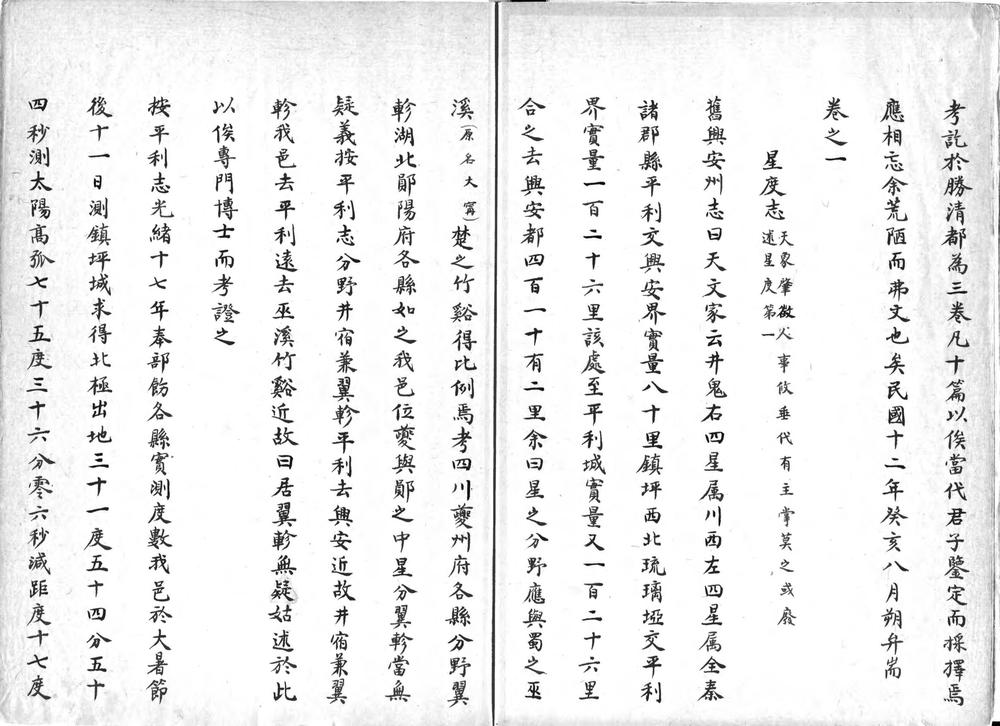 考訖於勝清都為三卷凡十篇以俟當代君子鑒定而採擇焉
應相忘余荒陋而弗文也矣民國十二年癸亥八月朔弁耑
卷之一
星度志 天象肇徵人事攸垂代有主掌莫之或廢
述星度第一
舊興安州志曰天文家云井鬼右四星属川西左四星属全秦
諸郡縣平利交興安界實量八十里鎮坪西北琉璃埡交平利
界實量一百二十六里該處至平利城實量又一百二十六里
合之去興安都四百一十有二里余曰星之分野應與蜀之巫
溪(原名大寗)楚之竹谿得比例焉考四川夔州府各縣分野翼
軫湖北鄖陽府各縣如之我邑位夔與鄖之中星分翼軫當無
疑義按平利志分野井宿兼翼軫平利去興安近故井宿兼翼
軫我邑去平利遠去巫溪竹谿近故曰居翼軫無疑姑述於此
以俟專門博士而考證之
按平利志光緒十七年奉部飭各縣實測度數我邑於大暑節
後十一日測鎮坪城求得北極出地三十一度五十四分五十
四秒測太陽高弧七十五度三十六分零六秒減距度十七度